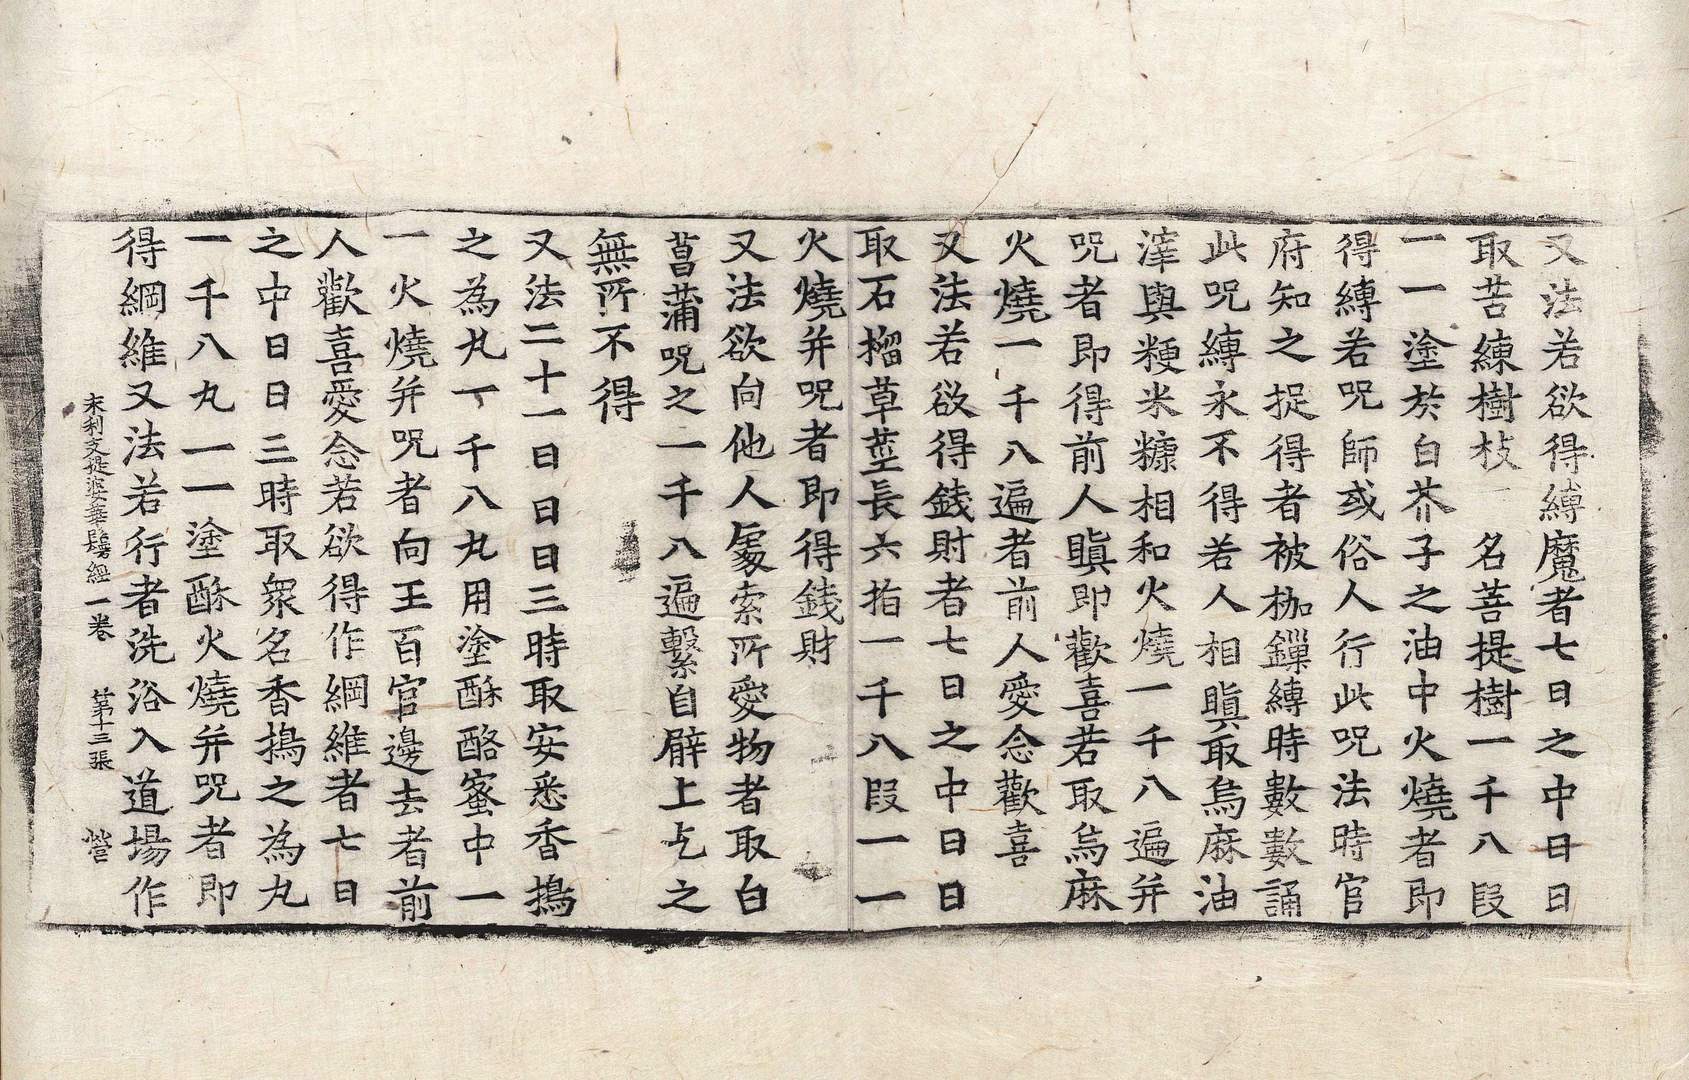 又法若欲得縛魔者七日之中日日
取苦練樹枝一名菩提樹一千八段
一一塗於白芥子之油中火燒者即
得縛若呪師或俗人行此呪法時官
府知之捉得者被枷鏁縛時數數誦
此呪縛永不得若人相瞋取烏麻油
滓與粳米糠相和火燒一千八遍并
呪者即得前人瞋即歡喜若取烏麻
火燒一千八遍者前人愛念歡喜
又法若欲得錢財者七日之中日日
取石榴草莖長六指一千八段一一
火燒并呪者即得錢財
又法欲向他人處索所愛物者取白
菖蒲呪之一千八遍繫自臂上乞之
無所不得
又法二十一日日日三時取安悉香擣
之為丸一千八丸用塗酥酪蜜中一
一火燒并呪者向王百官邊去者前
人歡喜愛念若欲得作綱維者七日
之中日日三時取衆名香擣之為丸
一千八丸一一塗酥火燒并呪者即
得綱維又法若行者洗浴入道場作
末利支提婆華鬘經一卷 第十三張 營